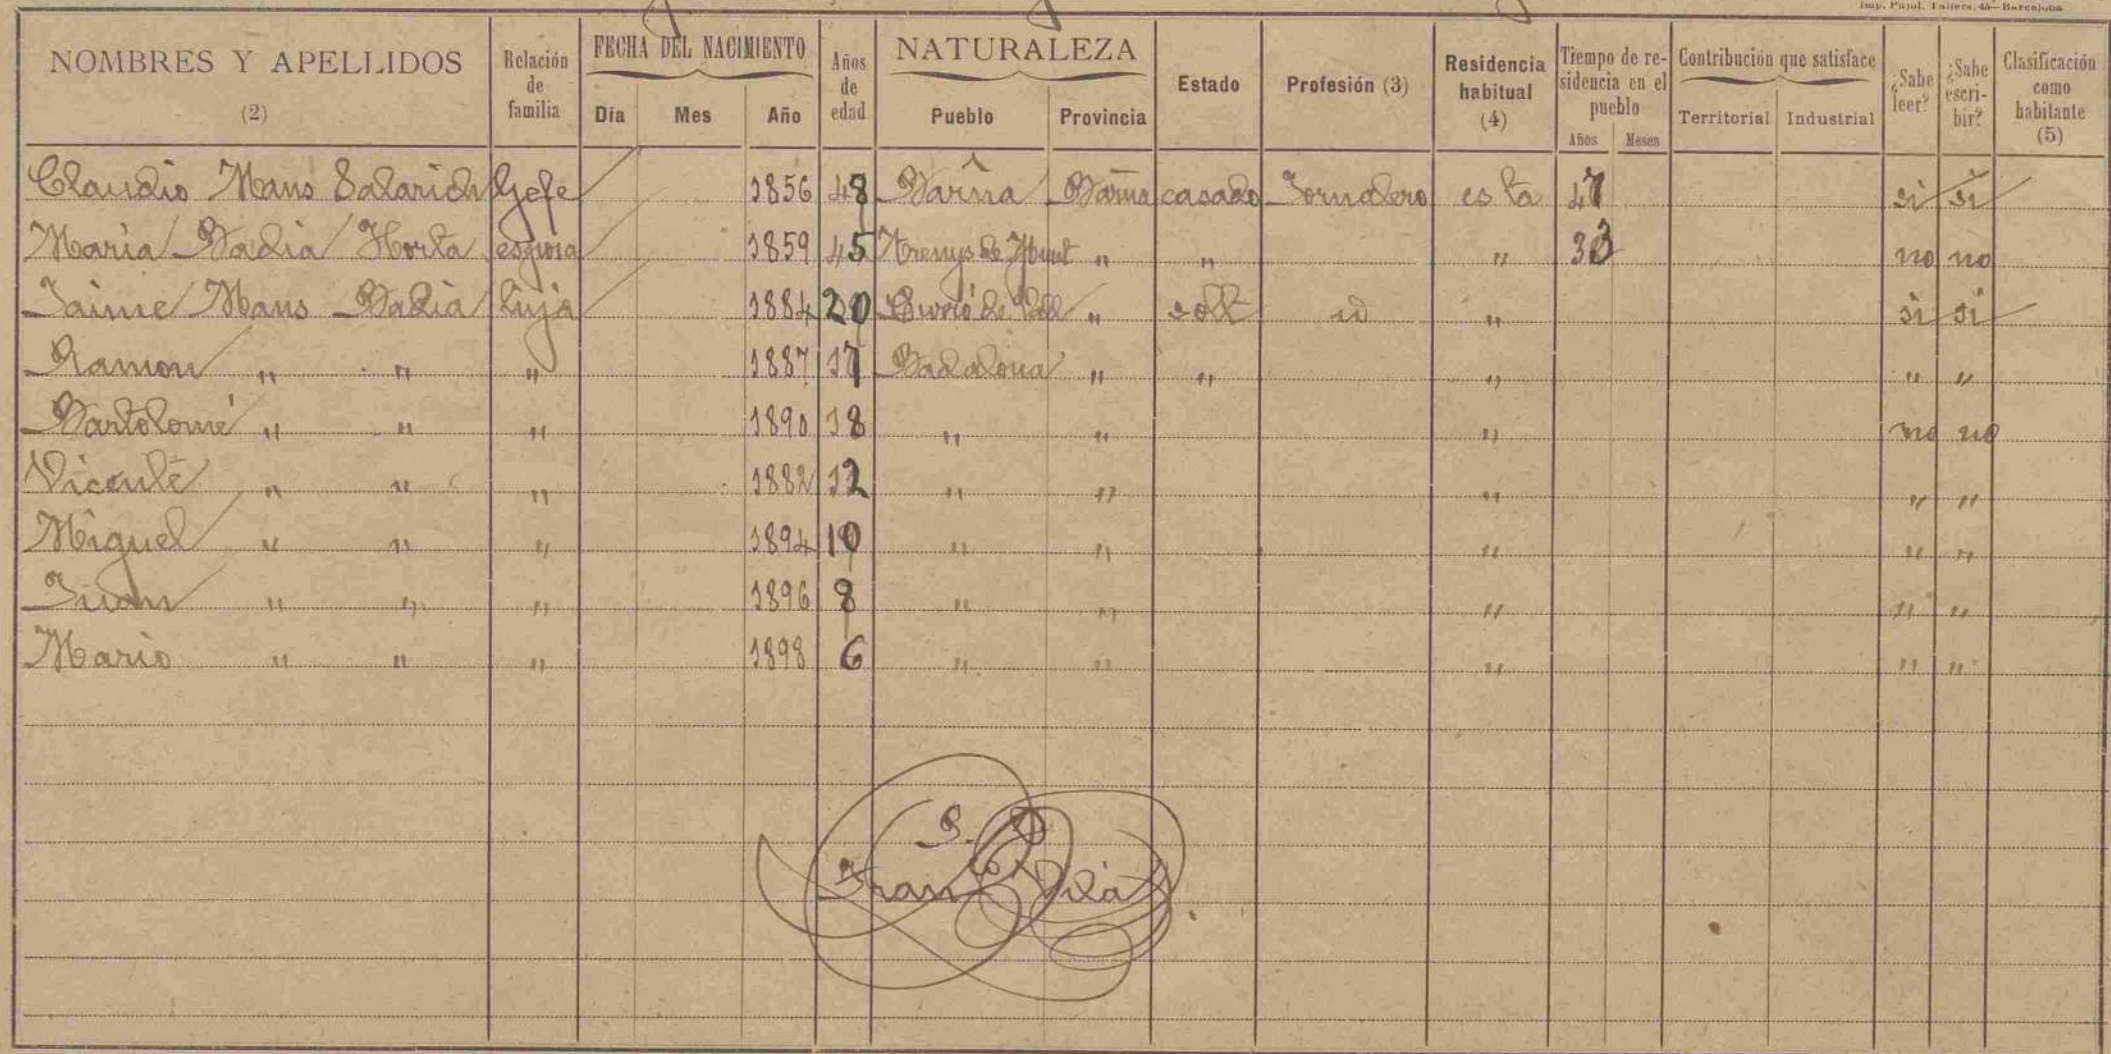 Imp. Pujol, Tallers, 45—Barcelona
NOMBRES Y APELLIDOS (2) Relación de familia FECHA DEL NACIMIENTO Día Mes Año Años de edad NATURALEZA Pueblo Provincia Estado Profesión (3) Residencia habitual (4) Tiempo de residencia en el pueblo Años Meses Contribución que satisface Territorial Industrial ¿Sabe leer? ¿Sabe escribir? Clasificación como habitante (5)
Claudio Mans Salarich Gefe 1856 48 Barña Barña casado Jornalero esta 47 si si
Maria Badia Horta esposa 1859 45 Arenys de Munt " " " 33 no no
Jaime Mans Badia hijo 1884 20 " solt id " si si
Ramon " " " 1887 17 Badalona " " " " "
Bartolomé " " " 1890 18 " " " no no
Vicente " " " 1882 12 " " " " "
Miguel " " " 1894 10 " " " " "
Juan " " " 1896 8 " " " " "
Mario " " " 1898 6 " " " " "
Fran Vilá